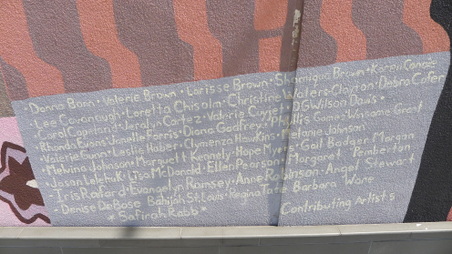 Donna Born • Valerie Brown • Larisse Brown • Shamiqua Brown • Karen Canales
Lee Cavanaugh • Loretta Chisolm • Christine Waters-Clayton • Debra Cofer
Carol Copeland • Jerah • Cortez • Valerie DG Wilson Davis •
Rhonda Evans • Janelle Morris • Diana Godfrey • Phyllis Gomes • Winsome Grant
Valerie Gunn • Leslie Haber • Clymenza Hawkins • Melanie Johnson •
Melvina Johnson • Marquett Kennely • Hope Myers • Gail Badger Morgan
Jason Lelchuk • Lisa McDonald • Ellen Pearson • Margaret Pemberton
Iris Raford • Evangelyn Ramsey • Anne Robinson • Angel Stewart
• Denise DeBose Babijah St. Louis • Regina Tate Barbara Wane
• Safirah Rabb •
Contributing Artists